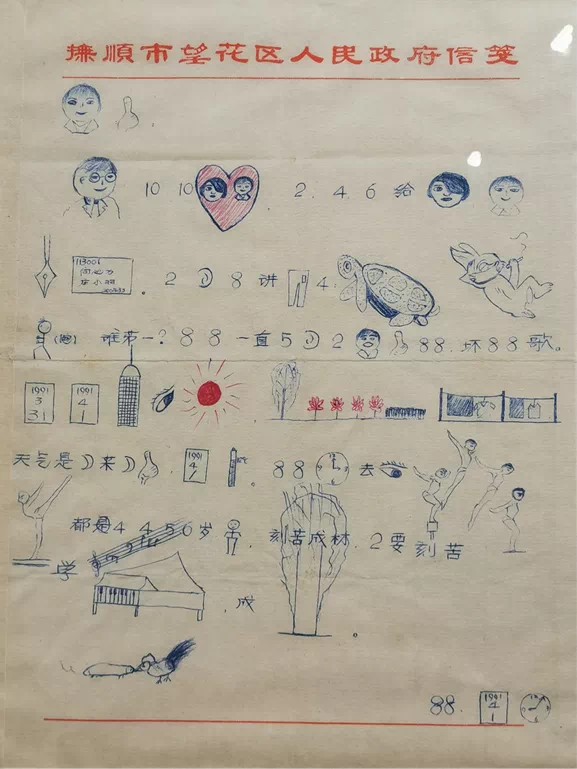 撫順市望花区人民政府信笺
10 10 2.4.6给
113006
。2 8讲 4:
(跑) 谁第一?88一直5 2 88.坏88歌。
1991 3 31 1991 4 1
天气是 来 , 1991 4 1 。88 去
都是4 4 5 6岁 , 刻苦成材, 2要刻苦
学 , 成 。
88. 1991 4 1